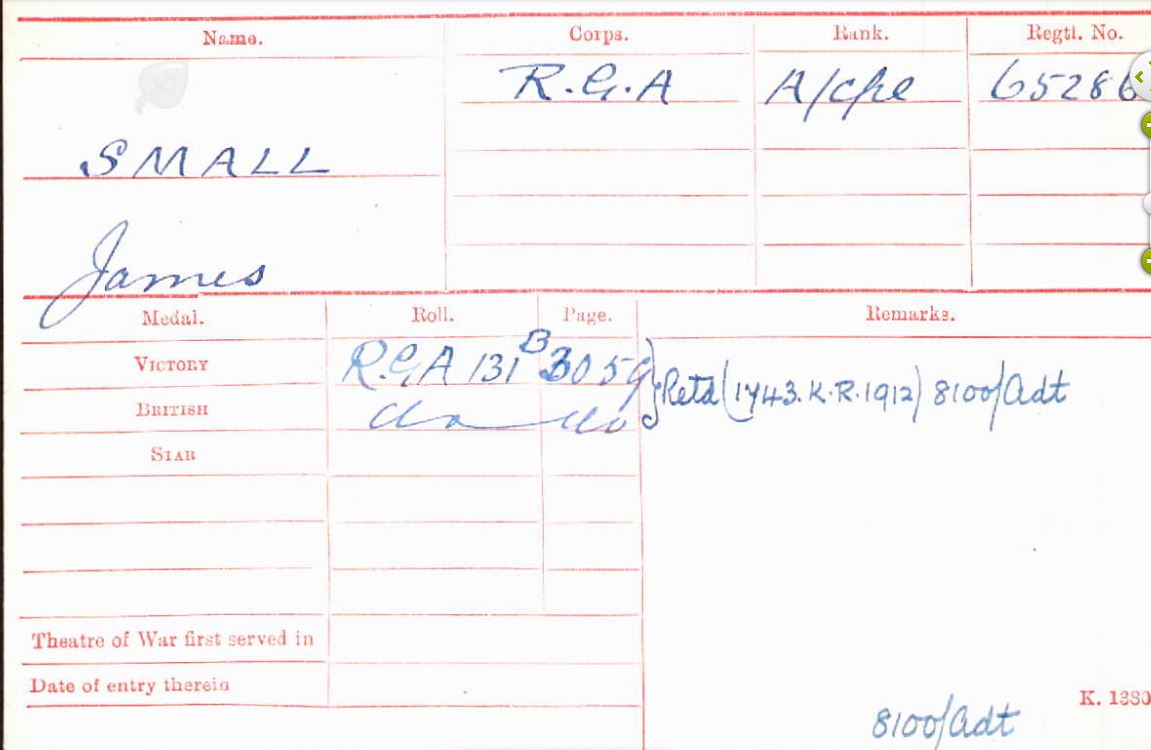 Name. Corps. Rank. Regtl. No.
R.G.A A/Cpl 65286
SMALL
James
Medal. Roll. Page. Remarks.
VICTORY R.G.A 131 B 3059 } Retd (1743. K.R. 1912) 8100/Adt
BRITISH do do
STAR
Theatre of War first served in
Date of entry therein
K. 1380
8100/Adt